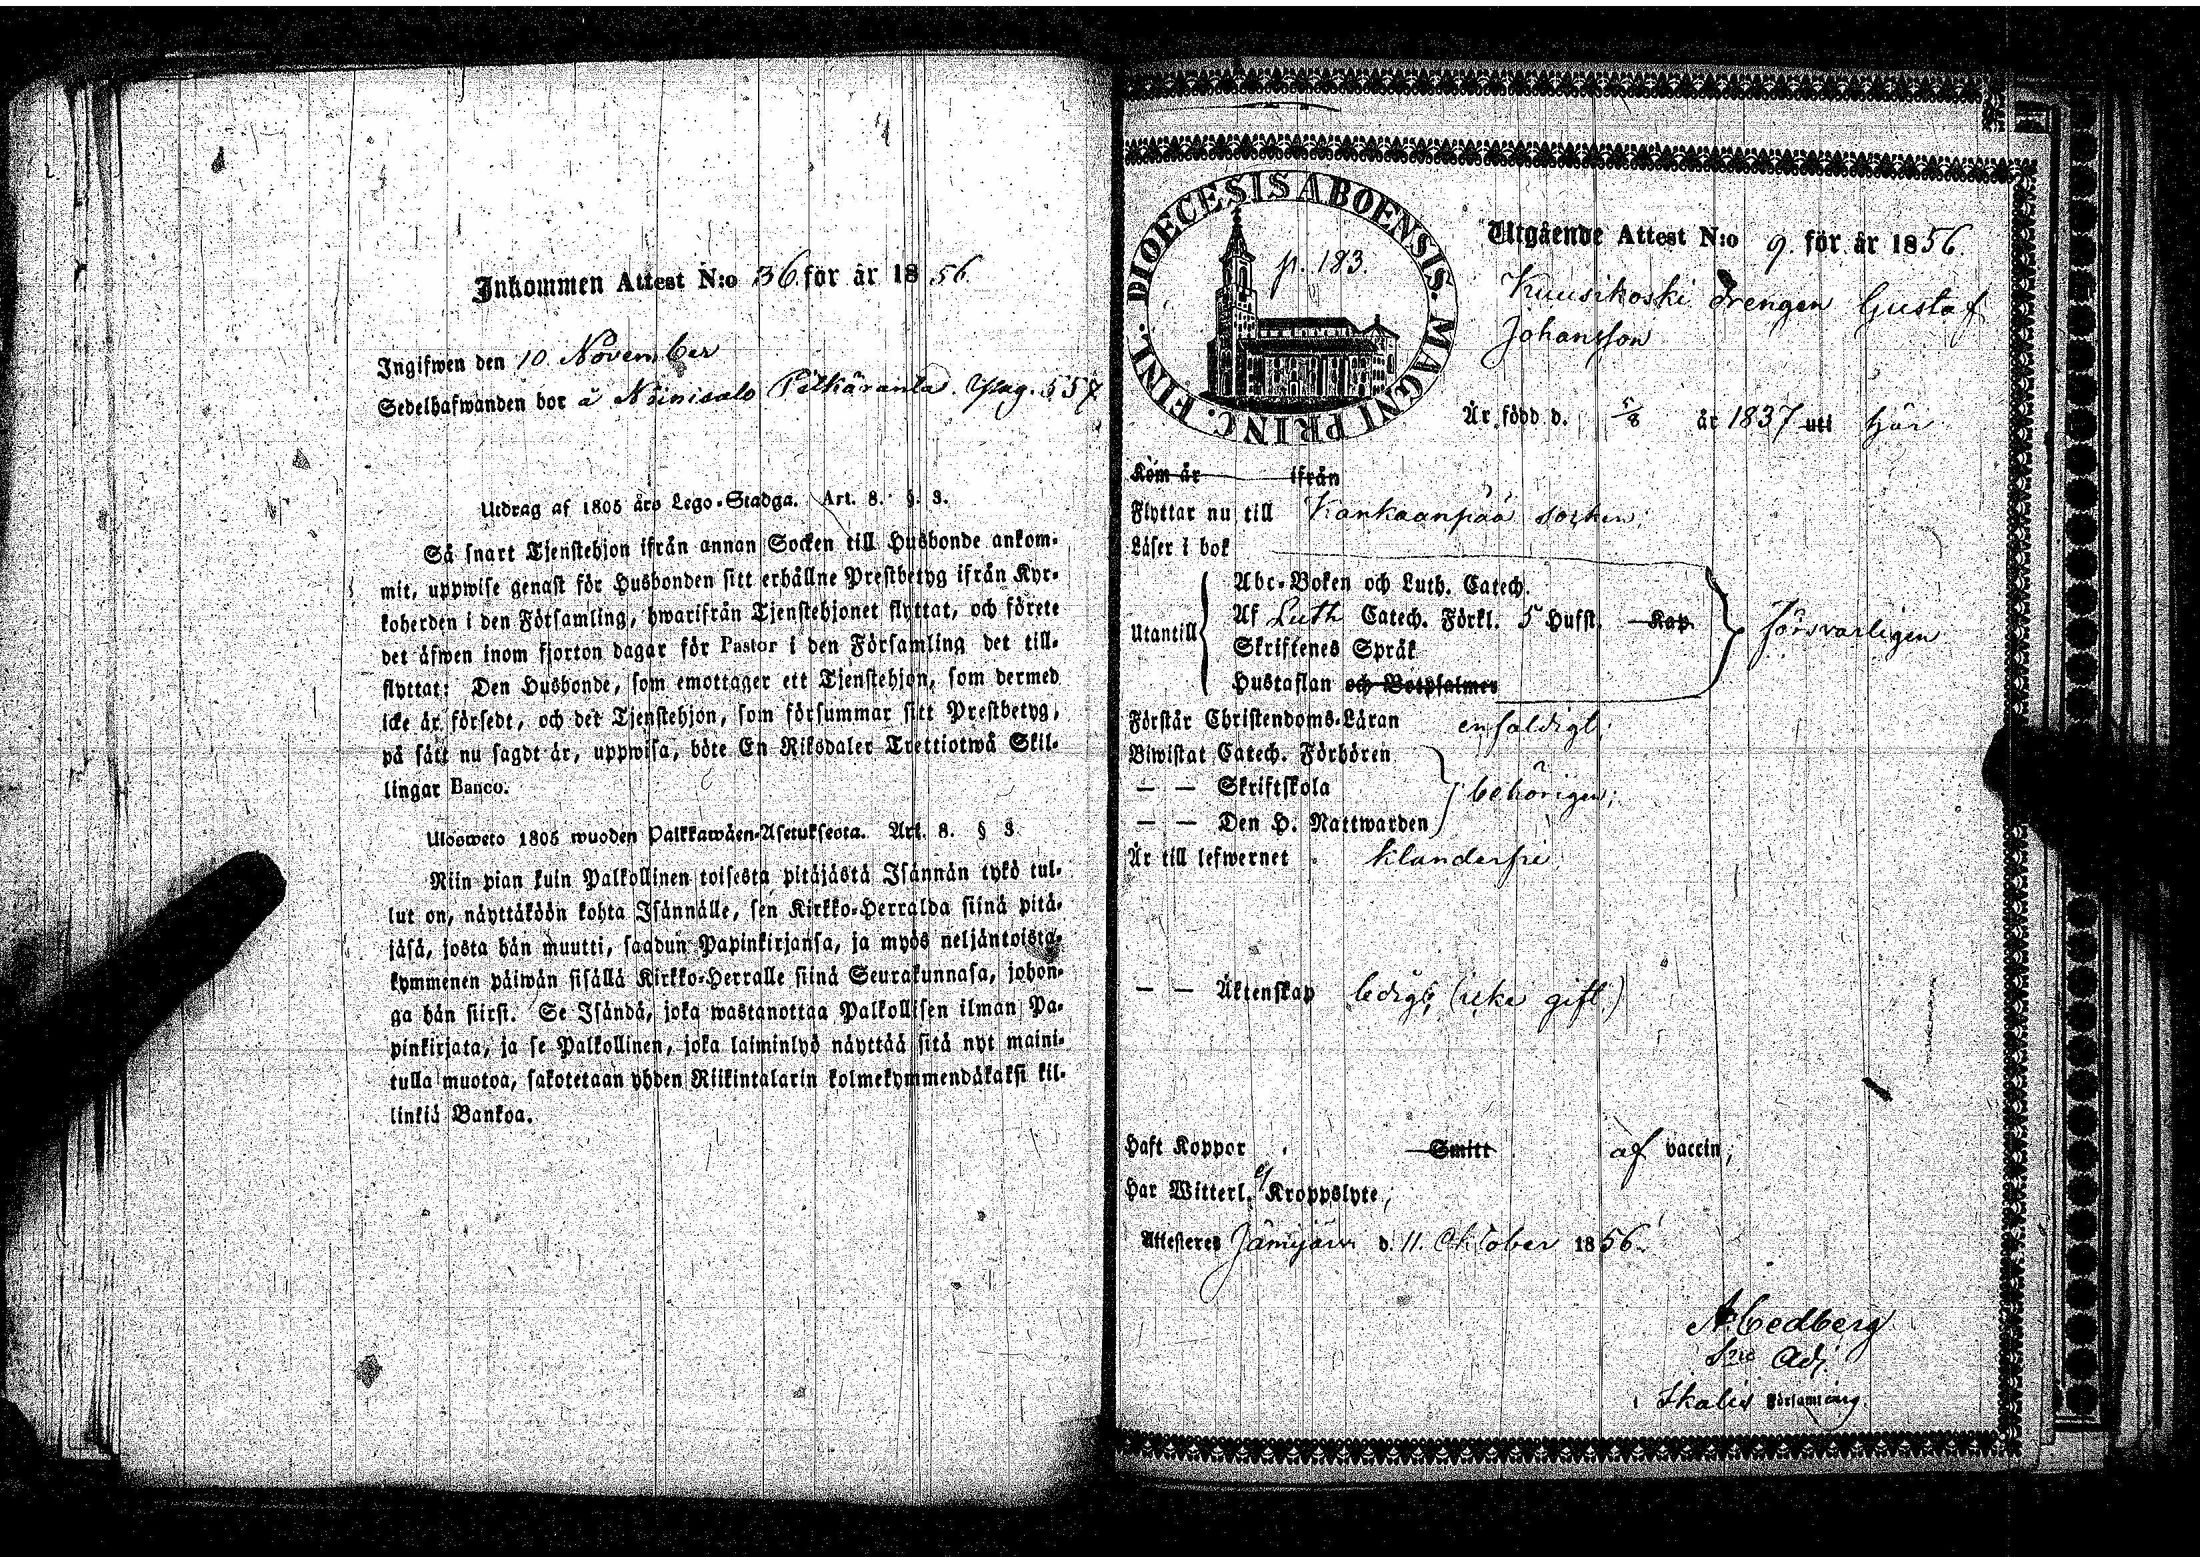 Inkommen Attest N:o 36. för år 1856.
Ingifwen den 10 November
Sedelhafwanden bor å Niinisalo Pitkäranta. Pag. 557
Utdrag af 1805 års Lego-Stadga. Art. 8. §. 3.
Så snart Tjenstehjon ifrån annan Socken till Husbonde ankom-
mit, uppwise genast för Husbonden sitt erhållne Prestbetyg ifrån Kyr-
koherden i den Församling, hwarifrån Tjenstehjonet flyttat, och förete
det äfwen inom fjorton dagar för Pastor i den Församling det till-
flyttat: Den Husbonde, som emottager ett Tjenstehjon, som dermed
icke är försedt, och det Tjenstehjon, som försummar sitt Prestbetyg,
på sätt nu sagdt är, uppwisa, böte En Riksdaler Trettiotwå Skil-
lingar Banco.
Ulosweto 1805 wuoden Palkkawäen-Asetuksesta. Art. 8. § 3
Niin pian kuin Palkollinen toisesta pitäjästä Isännän tykö tul-
lut on, näyttäköön kohta Isännälle, sen Kirkko-Herralda siinä pitä-
jäsä, josta hän muutti, saadun Papinkirjansa, ja myös neljäntoista-
kymmenen päiwän sisällä Kirkko-Herralle siinä Seurakunnasa, johon-
ga hän siirsi. Se Isändä, joka wastanottaa Palkollisen ilman Pa-
pinkirjata, ja se Palkollinen, joka laiminlyö näyttää sitä nyt maini-
tulla muotoa, sakotetaan yhden Riikintalarin kolmekymmendäkaksi kil-
linkiä Bankoa.
DIOECESIS ABOENSIS. MAGNI PRINC. FINL.
p. 183.
Utgående Attest N:o 9. för år 1856.
Kuusikoski drengen Gustaf
Johansson
Är född d. 5/8 år 1837 uti här
Kom år ifrån
Flyttar nu till Kankaanpää socken;
Läser i bok
Abc-Boken och Luth. Catech.
Utantill Af Luth Catech. Förkl. 5 Hufst. Kap. försvarligen
Skriftenes Språk
Hustaflan och Botpsalmer
Förstår Christendoms-Läran enfaldigt;
Biwistat Catech. Förhören
— — Skriftskola behörigen;
— — Den H. Nattwarden
Är till lefwernet klanderfri
— — Äktenskap ledigt, (icke gift.)
Haft Koppor Smitt af vaccin,
Har Witterl. ej Kroppslyte,
Attesteres Jämijärvi d. 11. Oktober 1856.
A. Cedberg
Adj
i Ikalis Församling.